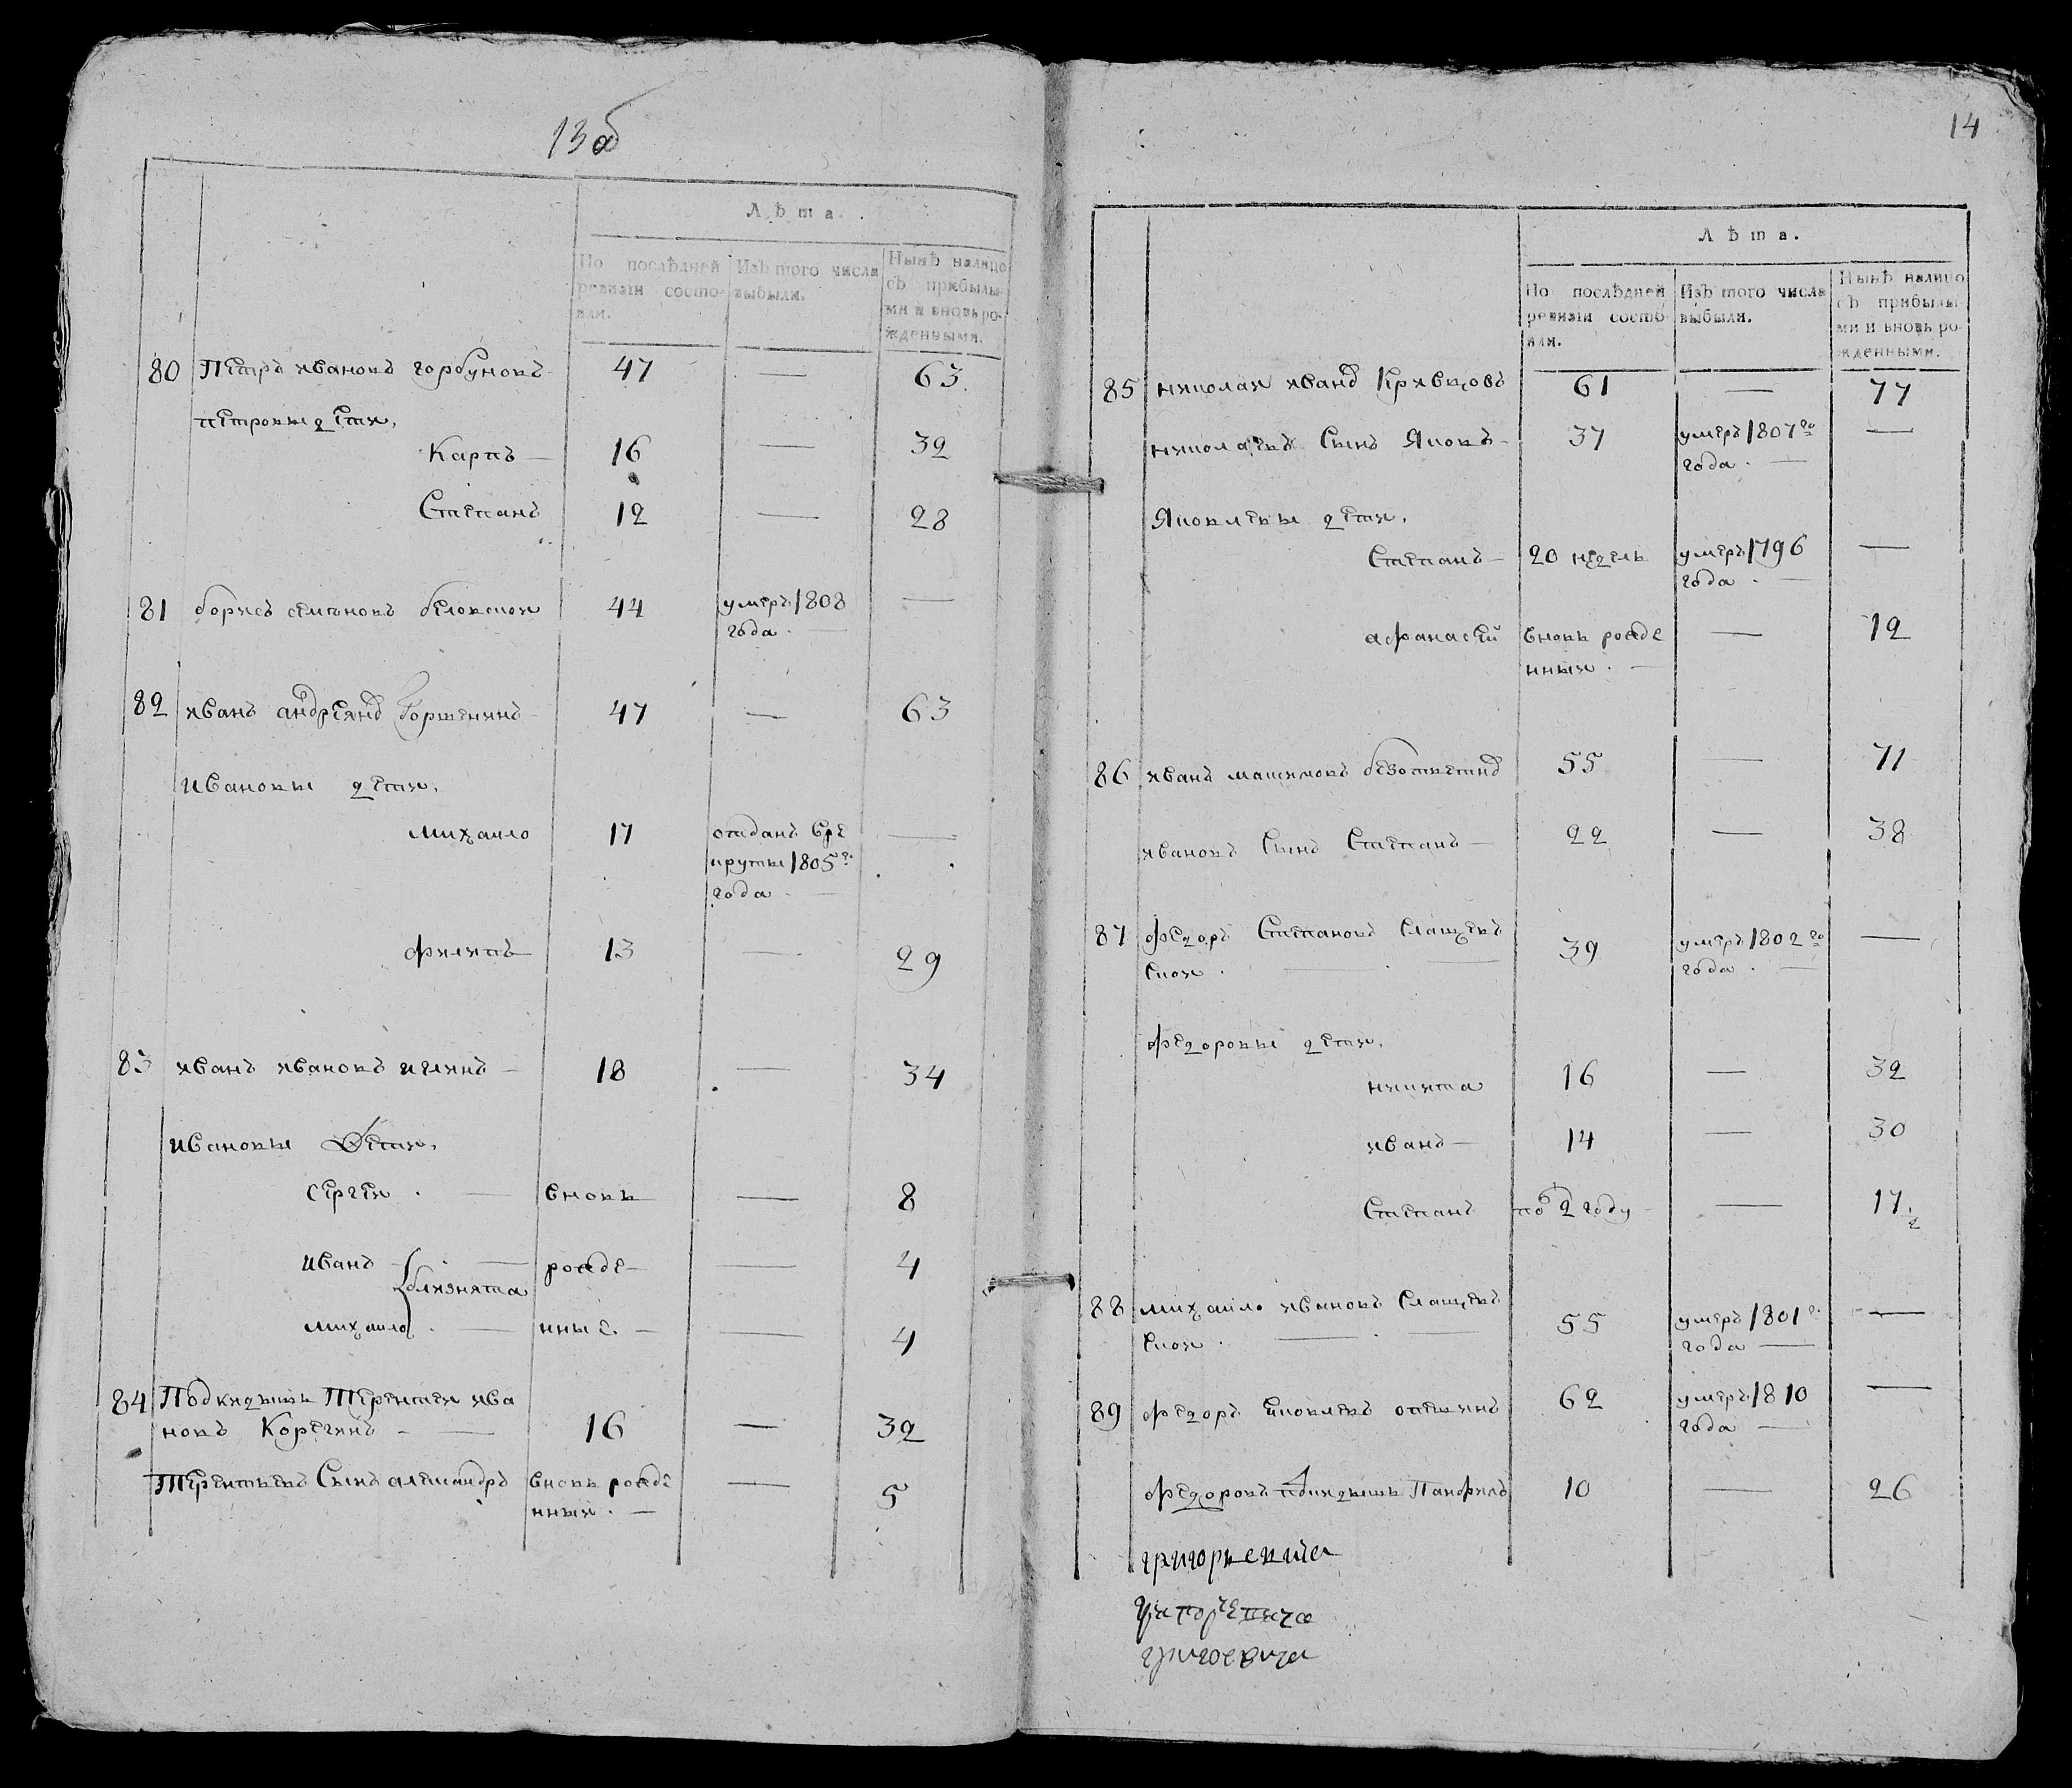 13 об
Лѣта.
По послѣдней ревизіи состояли.
Изъ того числа выбыли.
Нынѣ налицо съ прибылыми и вновь рожденными.
80 Петръ ивановъ горбуновъ 47 — 63
петровы дети,
Карпъ — 16 — 32
Степанъ 12 — 28
81 борисъ семеновъ 44 умеръ 1808 —
года. —
82 иванъ андреянъ 47 — 63
ивановы дети,
михаило 17 отданъ в ре —
круты 1805го
года —
филипъ 13 — 29
83 иванъ ивановъ — 18 — 34
ивановы Дети,
сергеи . — вновь — 8
иванъ — рожде — 4
близнята
михаило . — нные. — — 4
84 Подкидышь Терентеи ива
новъ Корегинъ — 16 — 32
Терентьевъ Сынъ александръ вновь рожде — 5
нныи . —
14
Лѣта.
По послѣдней ревизіи состояли.
Изъ того числа выбыли.
Нынѣ налицо съ прибылыми и вновь рожденными.
85 николаи иванъ Кривцовъ 61 — 77
николаевъ Сынъ Яковъ — 37 умеръ 1807го —
года . —
Яковлевы дети,
Степанъ — 20 недель умеръ 1796 —
года . —
афанасей вновь рожде — 12
нныи . —
86 иванъ макимовъ 55 — 71
ивановъ Сынъ Степанъ — 22 — 38
87 федоръ Степановъ Слащевъ 39 умеръ 1802го —
скои . — года . —
федоровы дети,
никита 16 — 32
иванъ — 14 — 30
Степанъ по 2 году — 17.
88 михаило ивановъ Слащевъ 55 умеръ 1801го —
скои . — года —
89 федоръ яковлевъ 62 умеръ 1810 —
года —
федоровъ подкидышь Панфилъ 10 — 26
григоевича